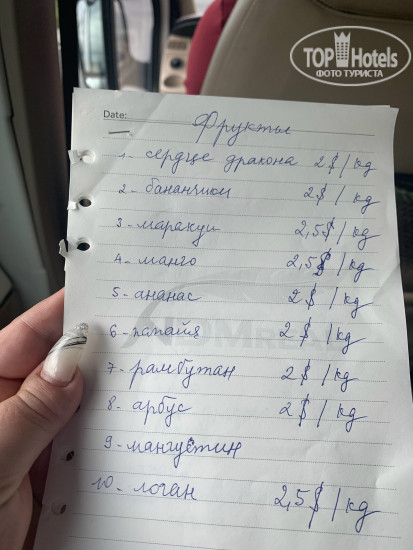 TOP Hotels
ФОТО ТУРИСТА
Date:
Фрукты
1 - сердце дракона 2$/kg
2 - бананчики 2$/kg
3 - маракуи 2,5$/kg
4 - манго 2,5$/kg
5 - ананас 2$/kg
6 - папайя 2$/kg
7 - рамбутан 2$/kg
8 - арбус 2$/kg
9 - мангустин
10 - логан 2,5$/kg